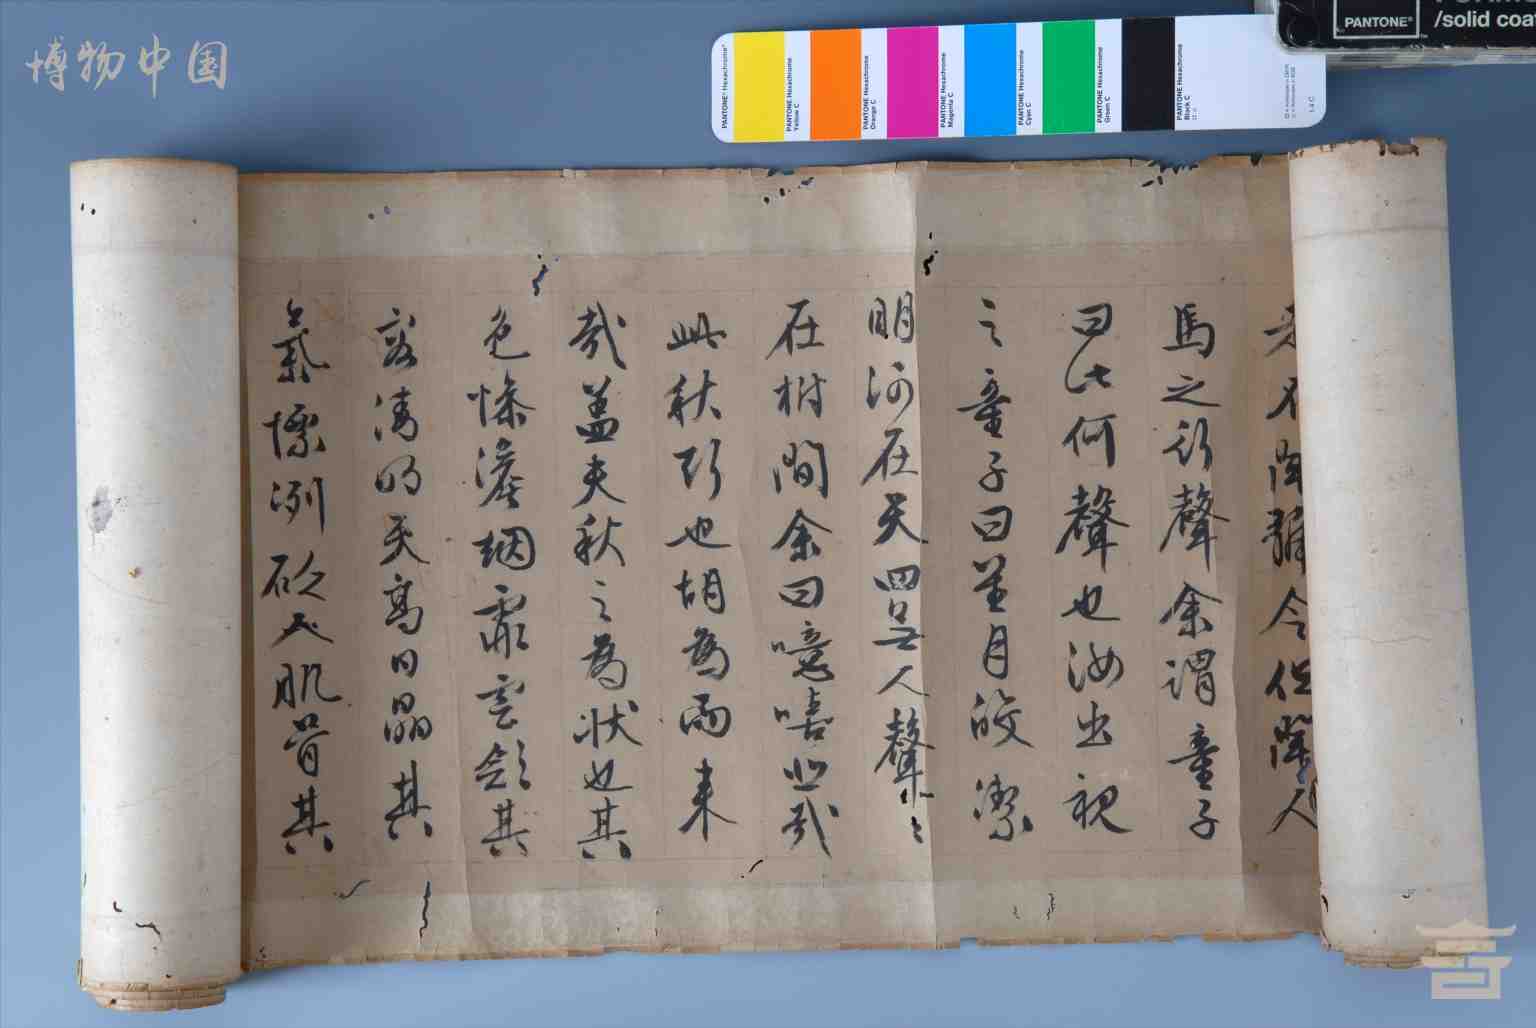 博物中国
PANTONE®
/solid coa
PANTONE® Hexachrome®
PANTONE Hexachrome Yellow C
PANTONE Hexachrome Orange C
PANTONE Hexachrome Magenta C
PANTONE Hexachrome Cyan C
PANTONE Hexachrome Green C
PANTONE Hexachrome Black C
1.4 C
不聞號令但聞人
馬之行聲余謂童子
曰此何聲也汝出視
之童子曰星月皎潔
明河在天四無人聲〻
在樹間余曰噫嘻悲哉
此秋聲也胡為而来
哉蓋夫秋之為狀也其
色慘澹烟霏雲歛其
容清明天高日晶其
氣慄冽砭人肌骨其